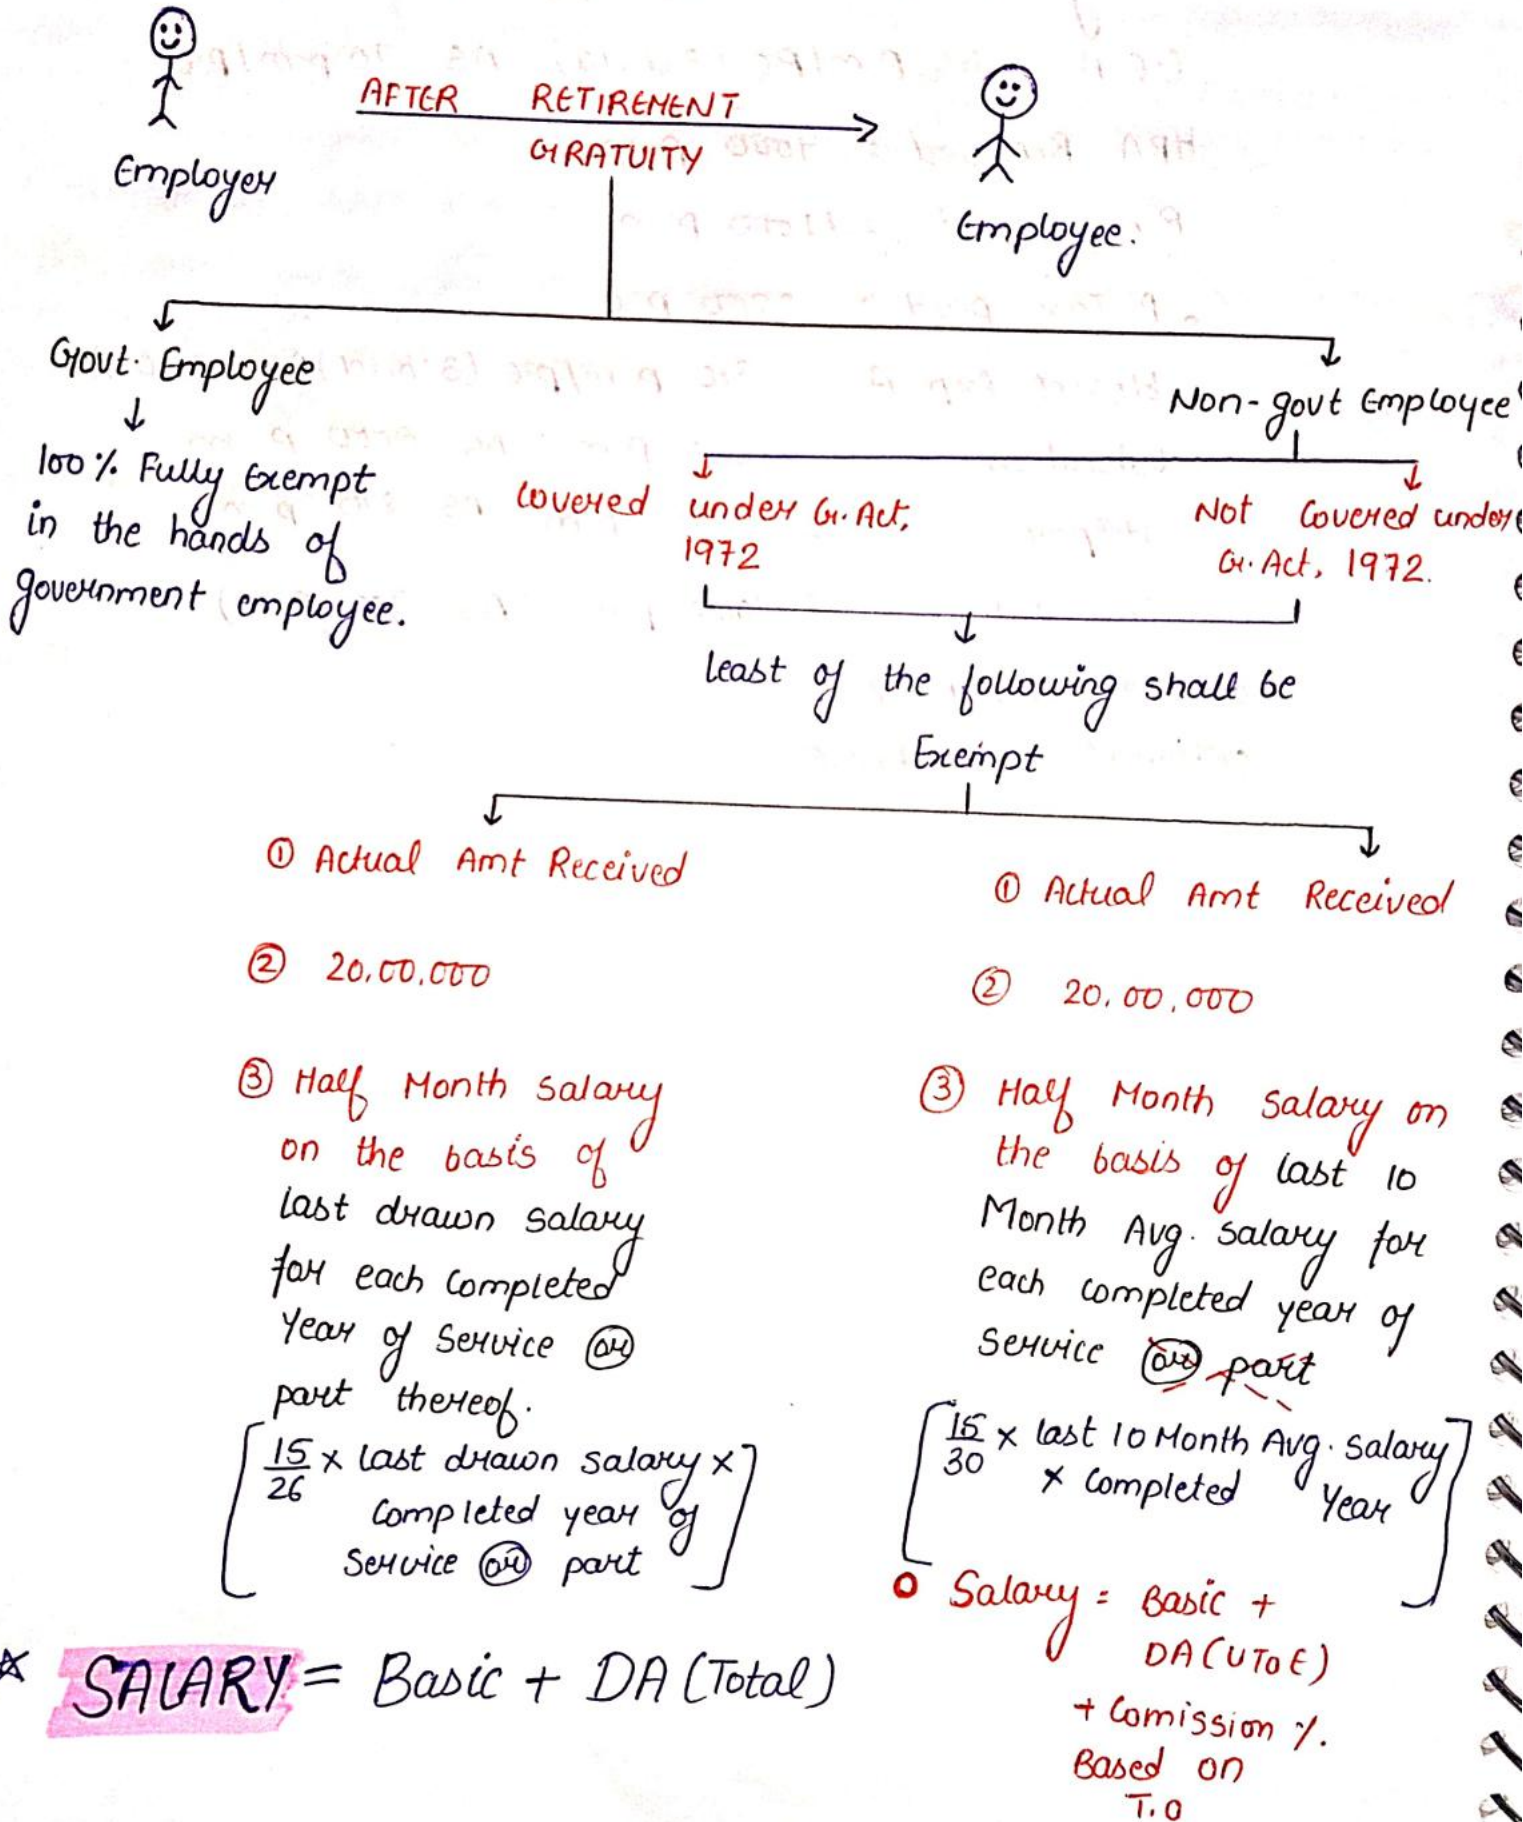 AFTER RETIREMENT
GRATUITY
Employer
Employee.
Govt. Employee
100% Fully Exempt
in the hands of
government employee.
Non-govt Employee
Covered under Gr. Act,
1972
Not Covered under
Gr. Act, 1972.
least of the following shall be
Exempt
① Actual Amt Received
② 20,00,000
③ Half Month Salary
on the basis of
last drawn salary
for each completed
Year of Service or
part thereof.
[15/26 × last drawn salary ×
Completed year of
Service or part]
★ SALARY = Basic + DA (Total)
① Actual Amt Received
② 20,00,000
③ Half Month Salary on
the basis of last 10
Month Avg. Salary for
each completed year of
Service or part
[15/30 × last 10 Month Avg. Salary
× Completed Year]
Salary = Basic +
DA (UToE)
+ Comission %.
Based on
T.O